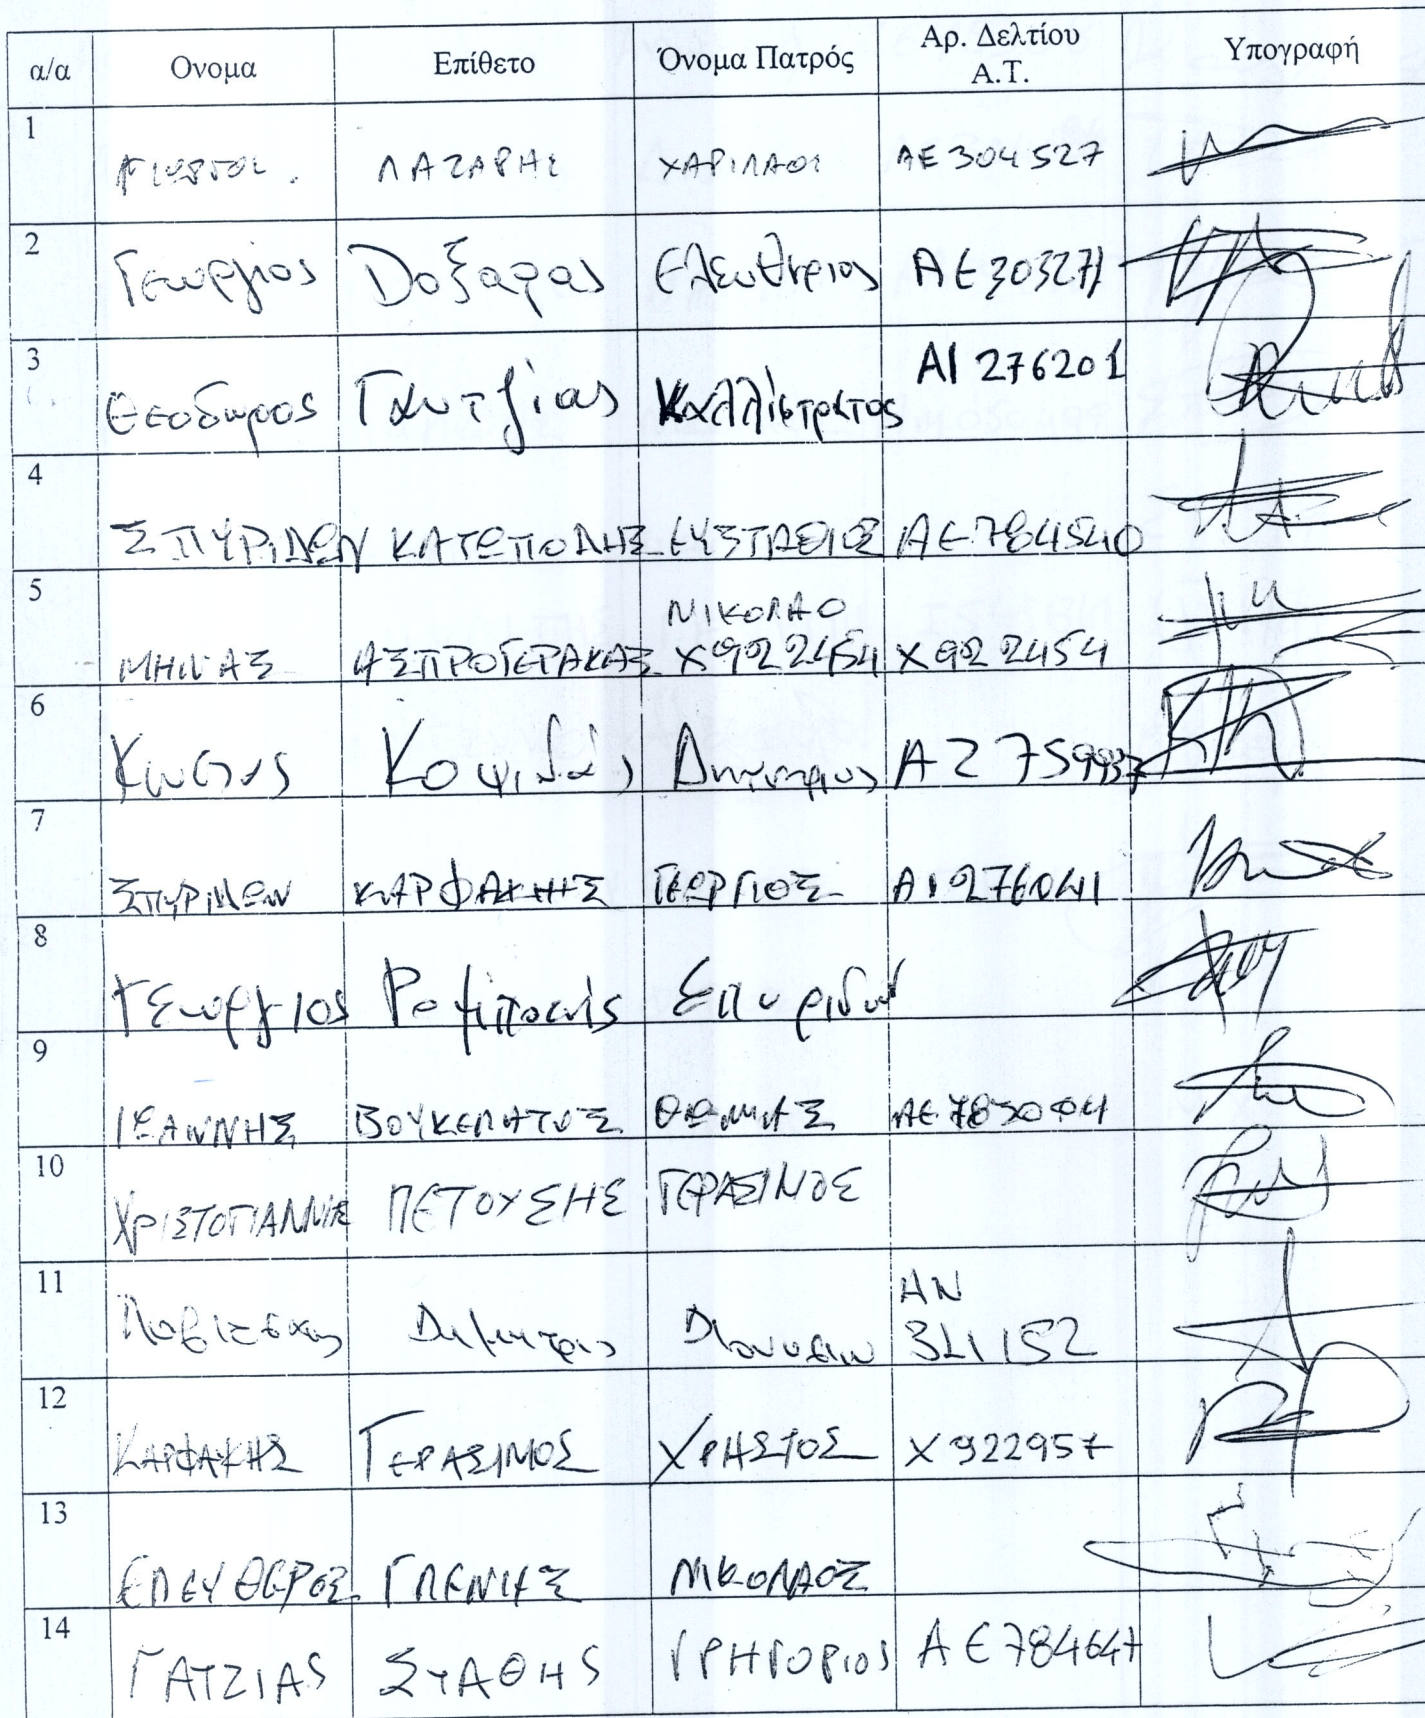 α/α Ονομα Επίθετο Όνομα Πατρός Αρ. Δελτίου Α.Τ. Υπογραφή
1 ΛΑΖΑΡΗΣ ΧΑΡΙΛΑΟΣ ΑΕ 304527
2 Γεώργιος Δοξαρας Ελευθέριος ΑΕ303271
3 Θεοδωρος Γαντζίας Καλλίστρατος ΑΙ 276201
4 ΣΠΥΡΙΔΩΝ ΚΑΤΩΠΟΔΗΣ ΕΥΣΤΑΘΙΟΣ ΑΕ784540
5 ΜΗΝΑΣ ΑΣΠΡΟΓΕΡΑΚΑΣ ΝΙΚΟΛΑΟ Χ922454 Χ922454
6 Κώστας Κοψιδάς Δημήτριος ΑΖ
7 ΣΠΥΡΙΔΩΝ ΚΑΡΦΑΚΗΣ ΓΕΩΡΓΙΟΣ ΑΙ276041
8 Γεωργιος Σπυριδων
9 ΙΩΑΝΝΗΣ ΒΟΥΚΕΛΑΤΟΣ ΘΩΜΑΣ
10 ΧΡΙΣΤΟΓΙΑΝΝΗΣ ΠΕΤΟΥΣΗΣ ΓΕΡΑΣΙΜΟΣ
11 Δημητρις Διονυσιου ΑΝ 341152
12 ΚΑΡΦΑΚΗΣ ΓΕΡΑΣΙΜΟΣ ΧΡΗΣΤΟΣ Χ922957
13 ΕΛΕΥΘΕΡΟΣ ΓΛΕΝΗΣ ΝΙΚΟΛΑΟΣ
14 ΓΑΤΖΙΑΣ ΣΤΑΘΗΣ ΓΡΗΓΟΡΙΟΣ ΑΕ784647